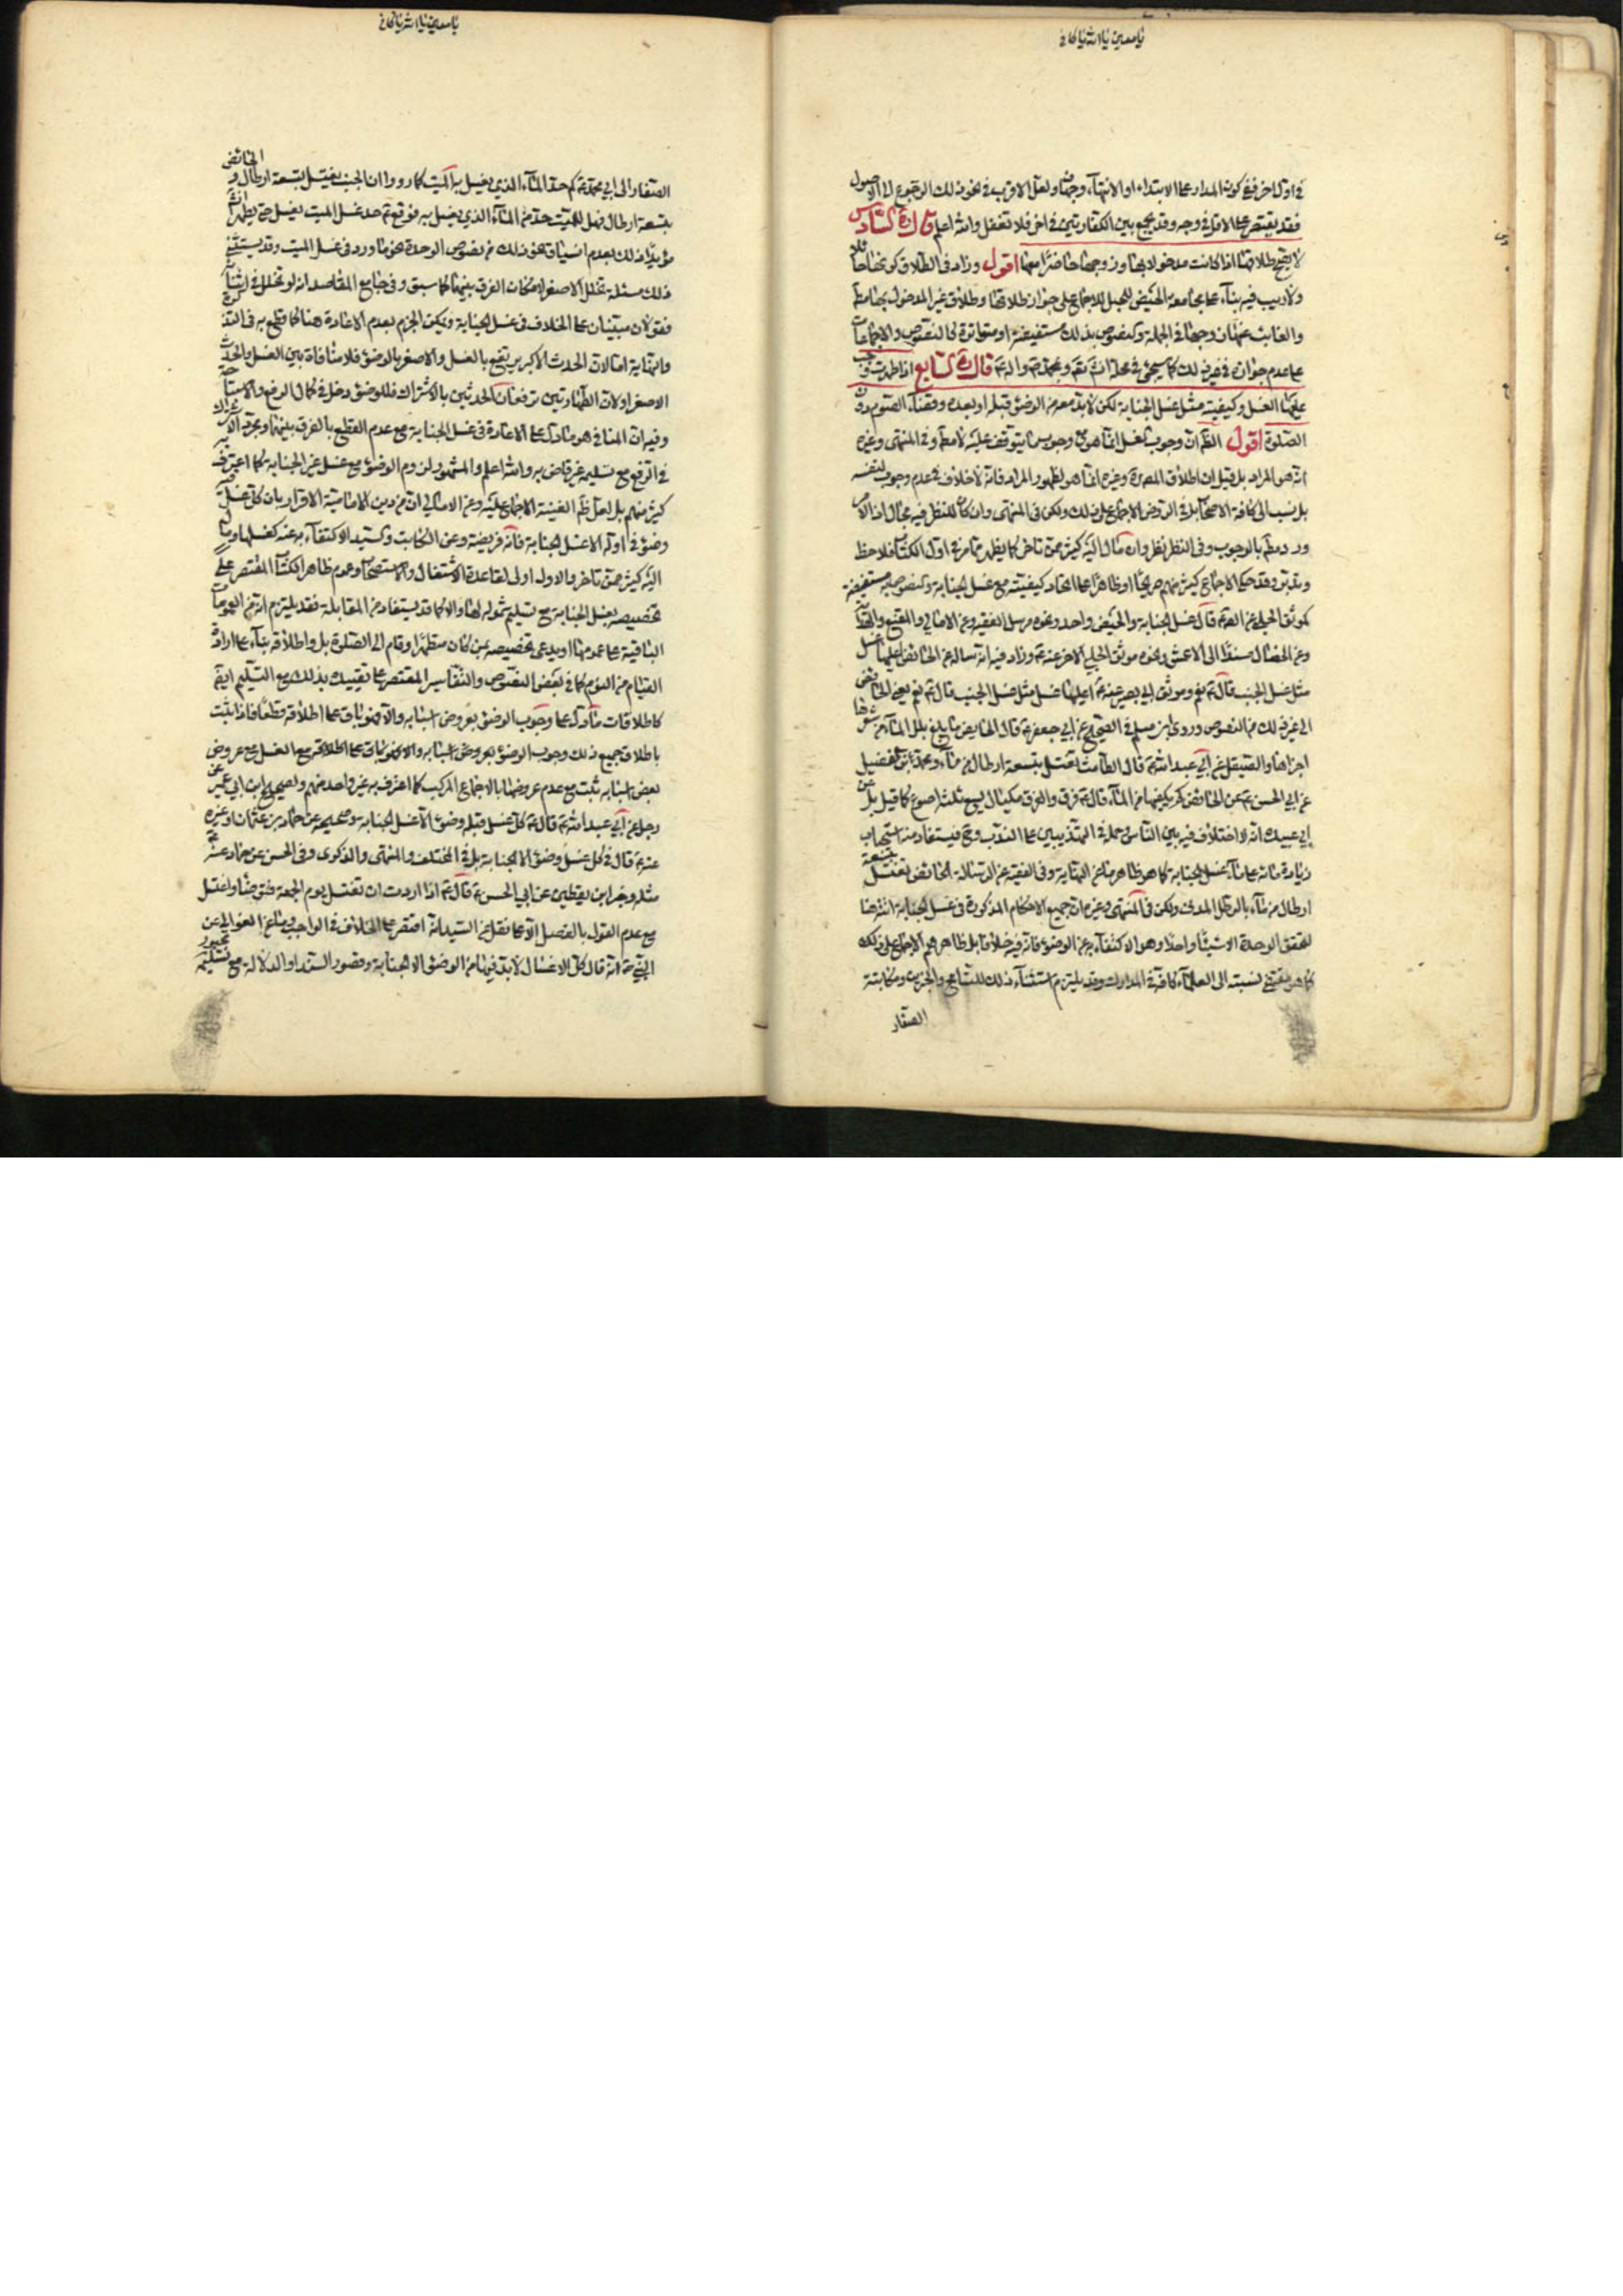 يا معين يا الله يا كافي
في اوله اخر ففي كون المدار على الابتداء او الانتهاء وجهان ولعل الاقرب في نحو ذلك الرجوع الى الاصول
فقد يقتصر على الاقل في وجه وقد يجمع بين الكفارتين في اخر فلا تغفل والله اعلم قال ره السادس
لا يصح طلاقها اذا كانت مدخولا بها وزوجها حاضرا معها اقول وزاد في الطلاق كونها حائلا
ولا ريب فيه بناء على مجامعة الحيض للحبل للاجماع على جواز طلاقها وطلاق غير المدخول بها مط
والغائب عنها زوجها في الجملة والنصوص بذلك مستفيضة او متواترة كالنصوص والاجماعات
على عدم جوازه في غير ذلك كما سيجئ في محله انش تعه وبمحمد ص واله ع قال ره السابع اذا طهرت وجب
عليها الغسل وكيفيته مثل غسل الجنابة لكن لا بد معه من الوضوء قبله او بعده وقضاء الصوم دون
الصلوة اقول الظ ان وجوب الغسل انما هو وجوب ما يتوقف عليه لا مط وفي المنتهى وغيره
انه هو المراد بل قيل ان اطلاق المص ره وغيره انما هو لظهور المراد فانه لا خلاف في عدم وجوبه لنفسه
بل نسب الى كافة الاصحاب بل في الروض الاجماع على ذلك ولكن في المنتهى وان كان للنظر فيه مجال اذ الامر
ورد مط بالوجوب وفي النظر نظر وان مال اليه كثير ممن تاخر كما يظهر مما مر في اول الكتاب فلاحظ
وتدبر وقد حكى الاجماع كثير منهم صريحا او ظاهرا على اتحاد كيفيته مع غسل الجنابة والنصوص به مستفيضة
كموثق الحلبي عن الص ع قال غسل الجنابة والحيض واحد ونحوه مرسل الفقيه وعن الامالي والمقنع والهداية
وعن الخصال مسندا الى الاعمش ونحوه موثق الحلبي الاخر عنه ع وزاد فيه انه ساله عن الحائض اعليها غسل
مثل غسل الجنب قال ع نعم وموثق ابي بصير عنه ع اعليها غسل مثل غسل الجنب قال ع نعم يعني الحائض
الى غير ذلك من النصوص وروى ابن مسلم في الصحيح عن ابي جعفر ع قال الحايض ما بلغ بلل الماء من شعرها
اجزاها والصيقل عن ابي عبد الله ع قال الطامث تغتسل بتسعة ارطال من ماء ومحمد ابن الفضيل
عن ابي الحسن ع عن الحائض كم يكفيها من الماء قال ع فرق والفرق مكيال يسع ثلثة اصوع كما قيل بل عن
ابي عبيد انه لا اختلاف فيه بين الناس حمله في التهذيبين على الندب وح فيستفاد منه استحباب
زيادة مائه على ماء غسل الجنابة كما هو ظاهر ما عن النهاية وفي الفقيه عن الرسالة الحائض تغتسل بتسعة
ارطال من ماء بالرطل المدني ولكن في المنتهى وغيره ان جميع الاحكام المذكورة في غسل الجنابة اتت هنا
لتحقق الوحدة الا شيئا واحدا وهو الاكتفاء به عن الوضوء فانه فيه خلافا بل ظاهرهم الاجماع على ذلك
كما هو مقتضى نسبته الى العلماء كافة في المدارك وقد يلتزم استثناء ذلك للتسامح والخبرين ومكاتبة
الصفار
يا معين يا الله يا كافي
الصفار الى ابي محمد ع كم حد الماء الذي يغسل به الميت كما رووا ان الجنب يغتسل بستة ارطال والحائض
بتسعة ارطال فهل للميت حد من الماء الذي يغسل به فوقع ع حد غسل الميت يغسل حتى يطهر انش
مؤيدا ذلك بعدم انسياق نحو ذلك من نصوص الوحدة نحو ما ورد في غسل الميت وقد يستثنى
ذلك مسئلة تخلل الاصغر لامكان الفرق بينهما كما سبق وفي جامع المقاصد انه لو تخلل في اثنائه
فقولان مبنيان على الخلاف في غسل الجنابة ويمكن الجزم بعدم الاعادة هنا كما قطع به في التذكرة
والنهاية اما لان الحدث الاكبر يرتفع بالغسل والاصغر بالوضوء فلا منافاة بين الغسل والحدث
الاصغر او لان الطهارتين ترفعان الحدثين بالاشتراك فللوضوء دخل في كمال الرفع والاستباحة
وفيه ان المنافي هو ما دل على الاعادة في غسل الجنابة مع عدم القطع بالفرق بينهما ومجرد الاشتراك
في الرفع مع تسليمه غير قاض به والله اعلم والمشهور لزوم الوضوء مع غسل غير الجنابة كما اعترف به
كثير منهم بل لعل ظ الغنية الاجماع عليه وعن الامالي ان من دين الامامية الاقرار بان كل غسل فيه
وضوء في اوله الا غسل الجنابة فانه فريضة وعن الكاتب والسيد الاكتفاء به عنه كغسلها ومال
اليه كثير ممن تاخر والاول اولى لقاعدة الاشتغال والاستصحاب وعموم ظاهر الكتاب المقتصر على
تخصيصه بغسل الجنابة مع تسليم شموله لها والا كما قد يستفاد من المقابلة فقد يلتزم انه من العمومات
الباقية على عمومها او يدعى تخصيصه بمن كان متطهرا وقام الى الصلوة بل واطلاقه بناء على ارادة
القيام من النوم كما في بعض النصوص والتفاسير المقتصر على تقييده بذلك مع التسليم ايضا
كاطلاقات ما دل على وجوب الوضوء بعروض اسبابه والا فهو باق على اطلاقه قطعا فاذا ثبت
باطلاق جميع ذلك وجوب الوضوء بعروض اسبابه والا فهو باق على اطلاقه مع الغسل مع عروض
بعض اسبابه ثبت مع عدم عروضها بالاجماع المركب كما اعترف به غير واحد منهم ولصحيح ابن ابي عمير عن
رجل عن ابي عبد الله ع قال ع كل غسل قبله وضوء الا غسل الجنابة وصحيحه عن حماد بن عثمان او غيره
عنه ع قال في كل غسل وضوء الا الجنابة بل في المختلف والمنتهى والذكرى وفي الحسن عن حماد عنه ع
مثله وخبر ابن يقطين عن ابي الحسن ع قال ع اذا اردت ان تغتسل يوم الجمعة فتوضأ واغتسل
مع عدم القول بالفصل الا ما نقل عن السيد انه اقتصر على الخلاف في الواجب وما عن العوالي عن
النبي ص انه قال كل الاغسال لا بد فيها من الوضوء الا الجنابة وقصور السند او الدلالة مع تسليمه مجبور